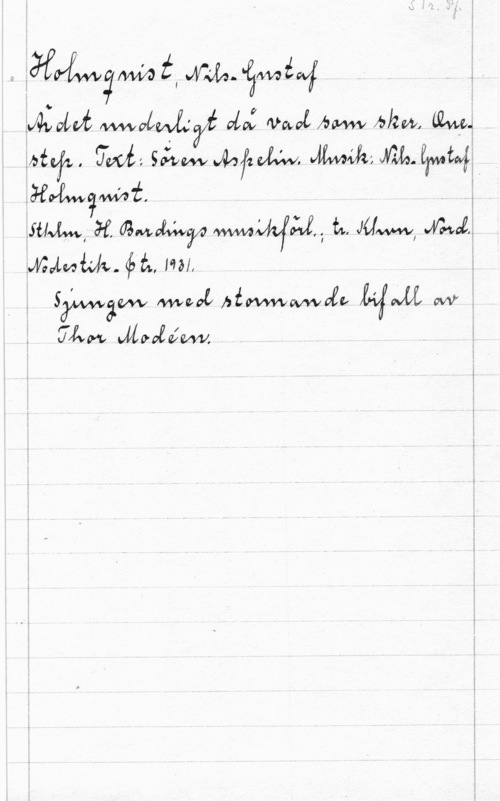 Holmqvist, Nils-Gustaf
Är det underligt då vad som sker. One-
step. Text: Sören Aspelin. Musik: Nils-Gustaf
Holmqvist.
Sthlm, H. Bardings musikförl.; tr. Khvn, Nord.
Nodestik- & tr. 1931.
Sjungen med stormande bifall av
Thor Modéen.